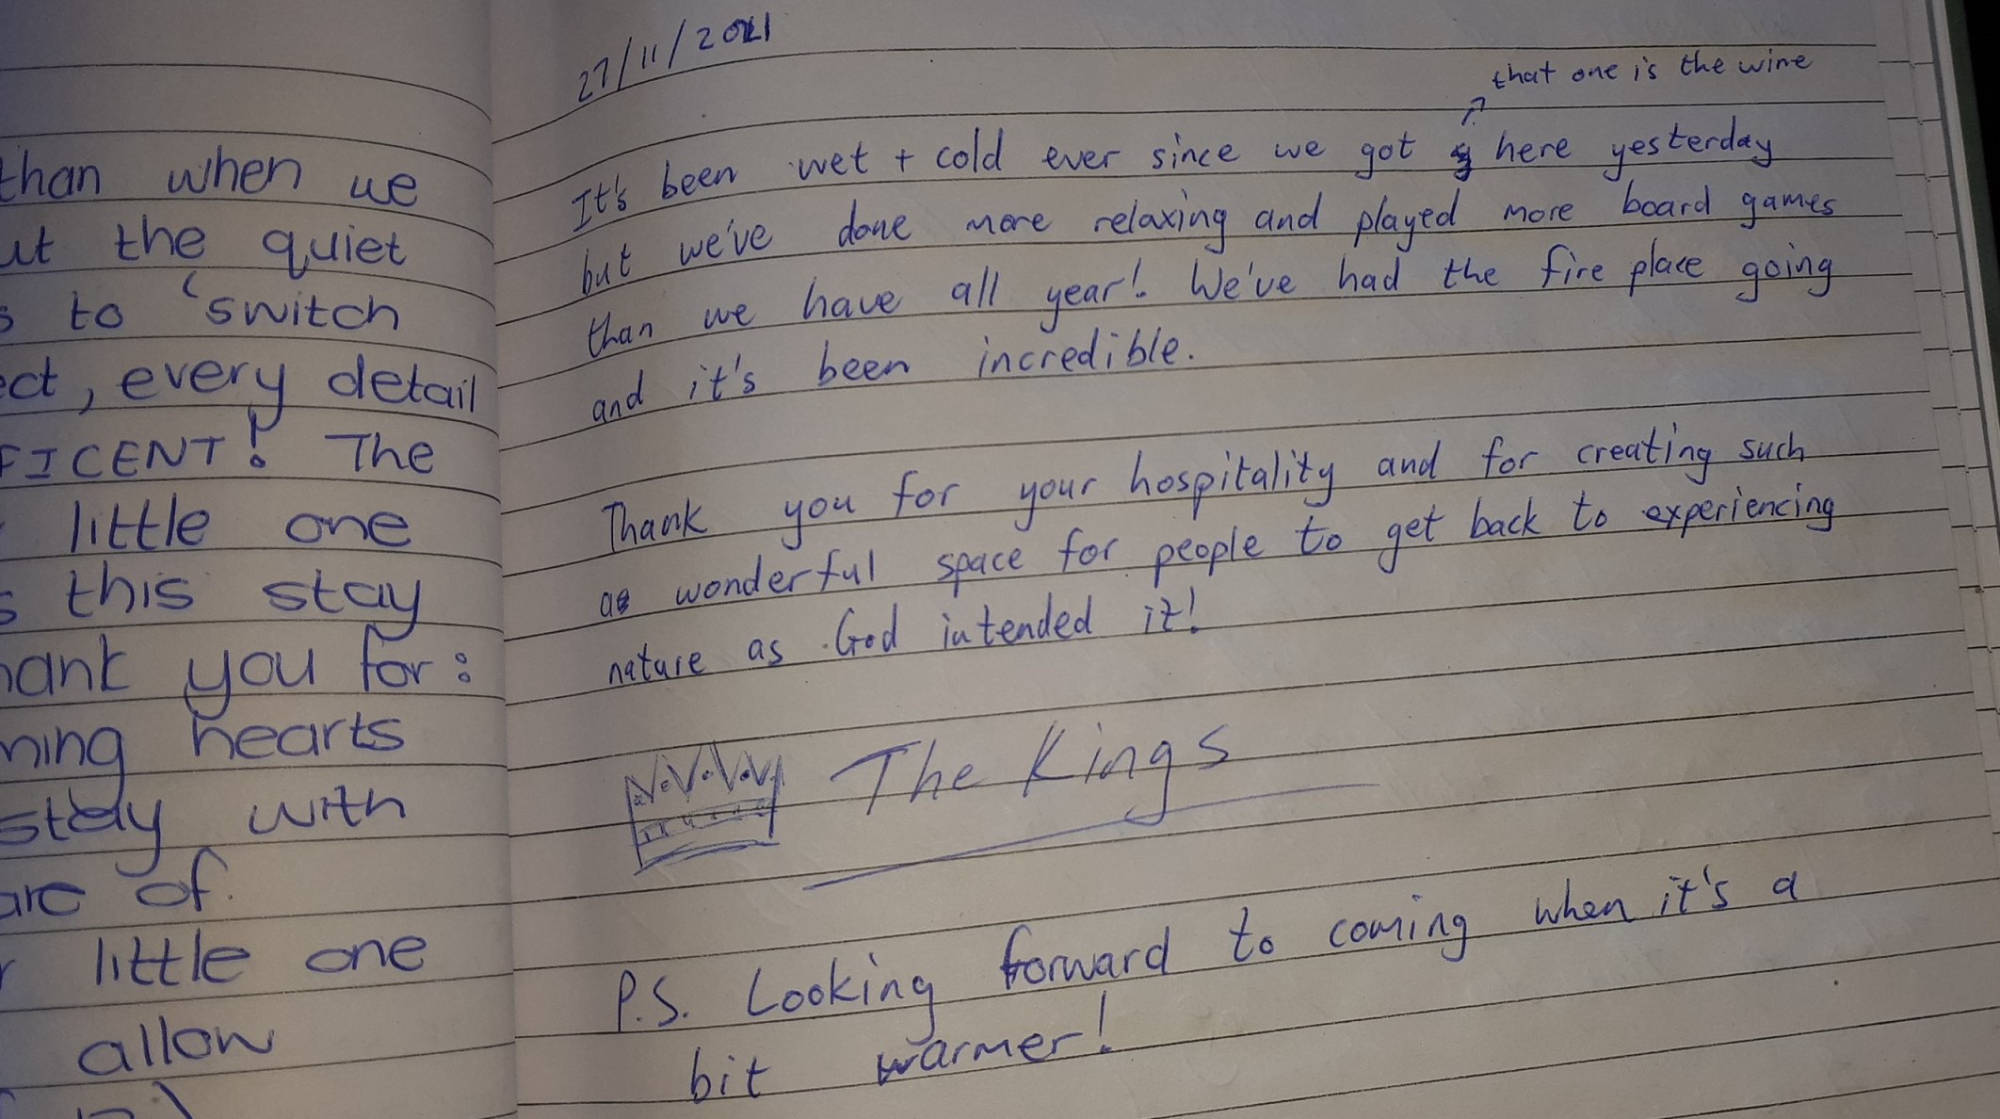 than when we
ut the quiet
s to 'switch
ect, every detail
FICENT! The
little one
s this stay
hank you for:
ning hearts
stay with
are of.
r little one
allow
27/11/2021
that one is the wine
It's been wet + cold ever since we got here yesterday
but we've done more relaxing and played more board games
than we have all year! We've had the fire place going
and it's been incredible.
Thank you for your hospitality and for creating such
a wonderful space for people to get back to experiencing
nature as God intended it!
The Kings
P.S. Looking forward to coming when it's a
bit warmer!